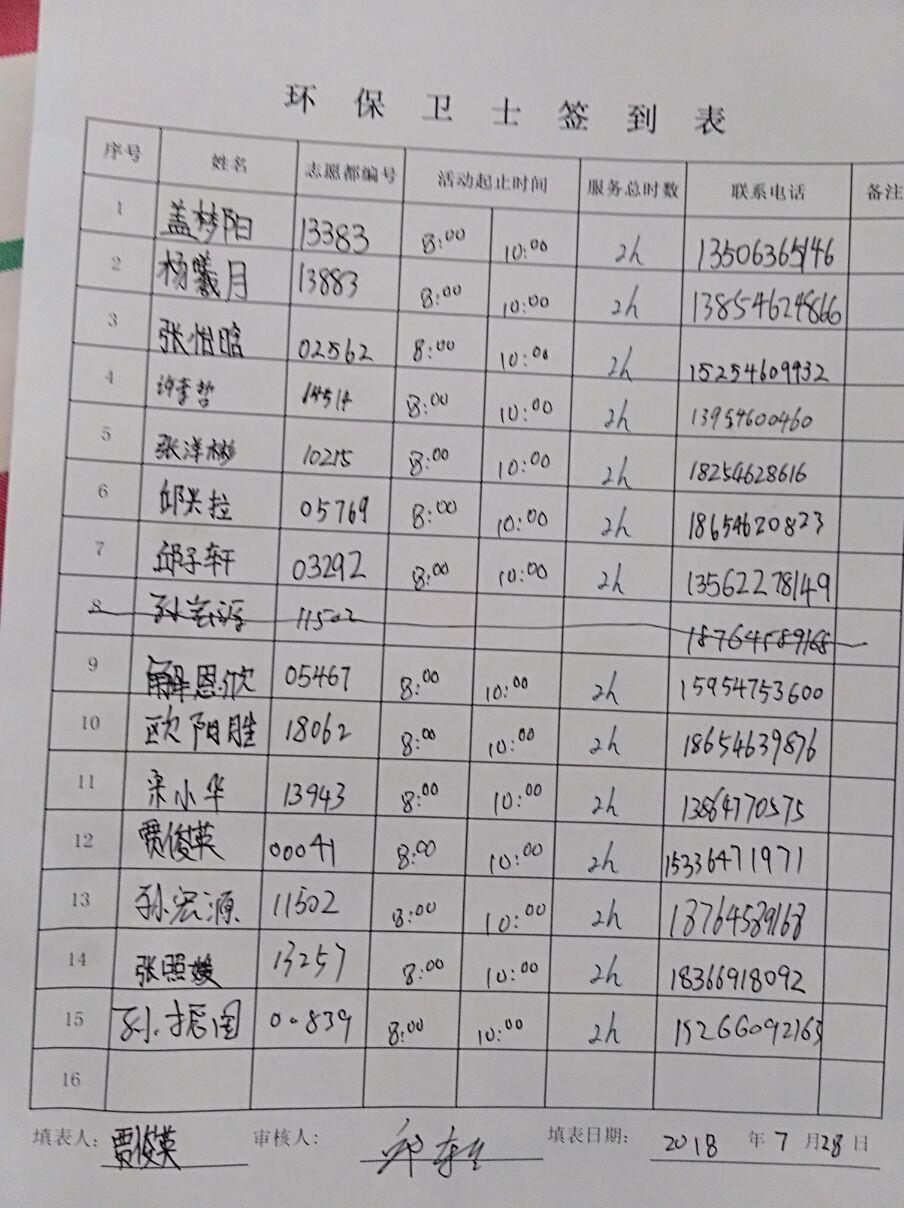 环保卫士签到表
序号 姓名 志愿都编号 活动起止时间 服务总时数 联系电话 备注
1 盖梦阳 13383 8:00 10:00 2h 13506365146
2 杨曦月 13883 8:00 10:00 2h 13854624866
3 张怡晗 02562 8:00 10:00 2h 15254609932
4 许李哲 14514 8:00 10:00 2h 13954600460
5 张洋彬 10215 8:00 10:00 2h 18254628616
6 邱兴拉 05769 8:00 10:00 2h 18654620823
7 邱子轩 03292 8:00 10:00 2h 13562278149
8 孙宏源 11502 18764589168
9 解恩欣 05467 8:00 10:00 2h 15954753600
10 欧阳胜 18062 8:00 10:00 2h 18654639876
11 宋小华 13943 8:00 10:00 2h 13864770575
12 贾俊英 00041 8:00 10:00 2h 15336471971
13 孙宏源 11502 8:00 10:00 2h 18764589168
14 张照媛 13257 8:00 10:00 2h 18366918092
15 孙振国 00839 8:00 10:00 2h 15266092163
16
填表人: 贾俊英 审核人: 填表日期: 2018 年 7 月 28 日